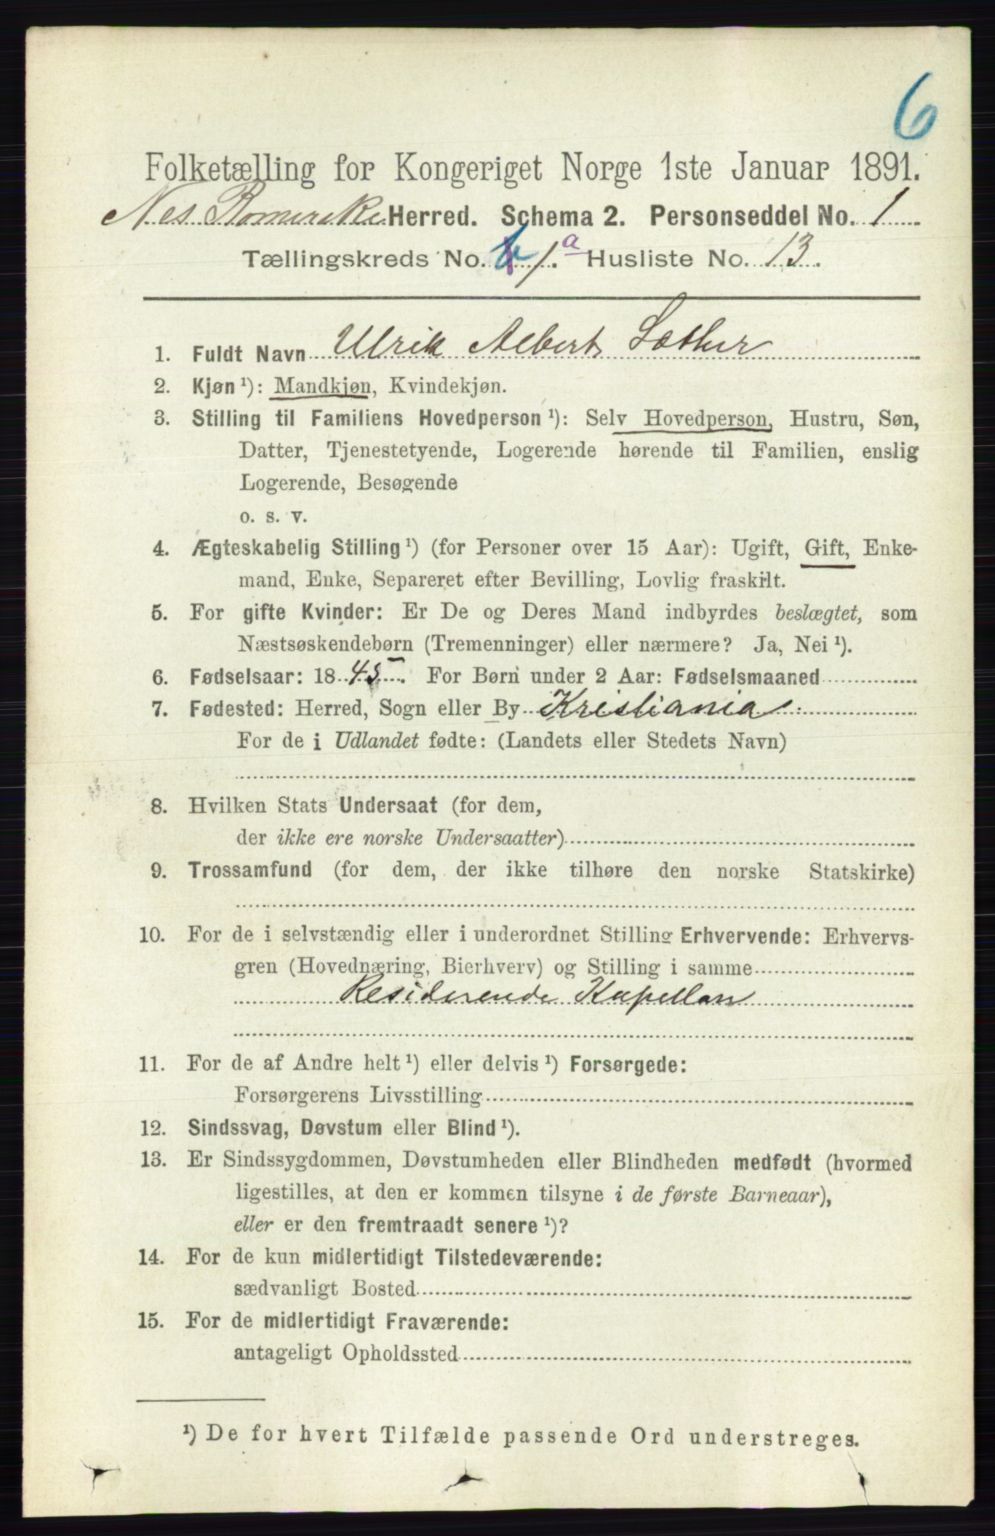 6
Folketælling for Kongeriget Norge 1ste Januar 1891.
Nes Romerike Herred. Schema 2. Personseddel No. 1
Tællingskreds No. 6 1.a Husliste No. 13.
1. Fuldt Navn Ulrik Albert Sæther
2. Kjøn¹): Mandkjøn, Kvindekjøn.
3. Stilling til Familiens Hovedperson¹): Selv Hovedperson, Hustru, Søn,
Datter, Tjenestetyende, Logerende hørende til Familien, enslig
Logerende, Besøgende
o. s. v.
4. Ægteskabelig Stilling¹) (for Personer over 15 Aar): Ugift, Gift, Enke-
mand, Enke, Separeret efter Bevilling, Lovlig fraskilt.
5. For gifte Kvinder: Er De og Deres Mand indbyrdes beslægtet, som
Næstsøskendebørn (Tremenninger) eller nærmere? Ja, Nei¹).
6. Fødselsaar: 1845. For Børn under 2 Aar: Fødselsmaaned
7. Fødested: Herred, Sogn eller By Kristiania.
For de i Udlandet fødte: (Landets eller Stedets Navn)
8. Hvilken Stats Undersaat (for dem,
der ikke ere norske Undersaatter)
9. Trossamfund (for dem, der ikke tilhøre den norske Statskirke)
10. For de i selvstændig eller i underordnet Stilling Erhvervende: Erhvervs-
gren (Hovednæring, Bierhverv) og Stilling i samme
Residerende Kapellan
11. For de af Andre helt¹) eller delvis¹) Forsørgede:
Forsørgerens Livsstilling
12. Sindssvag, Døvstum eller Blind¹).
13. Er Sindssygdommen, Døvstumheden eller Blindheden medfødt (hvormed
ligestilles, at den er kommen tilsyne i de første Barneaar),
eller er den fremtraadt senere¹)?
14. For de kun midlertidigt Tilstedeværende:
sædvanligt Bosted
15. For de midlertidigt Fraværende:
antageligt Opholdssted
¹) De for hvert Tilfælde passende Ord understreges.